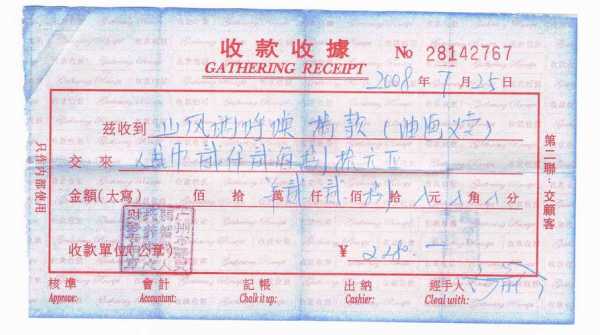 收款收據
GATHERING RECEIPT
No 28142767
2008 年 7 月 25 日
茲收到 山风 呼唤 捐款 (油画义卖)
交來 人民币 贰仟贰佰捌拾元正
金額(大寫) 佰 拾 萬 贰 仟 贰 佰 捌 拾 元 角 分
收款單位(公章) ¥ 2280.—
核準 會計 記帳 出納 經手人
Approve: Accountant: Chalk it up: Cashier: Cleal with:
只作内部使用
第二聯:交顧客